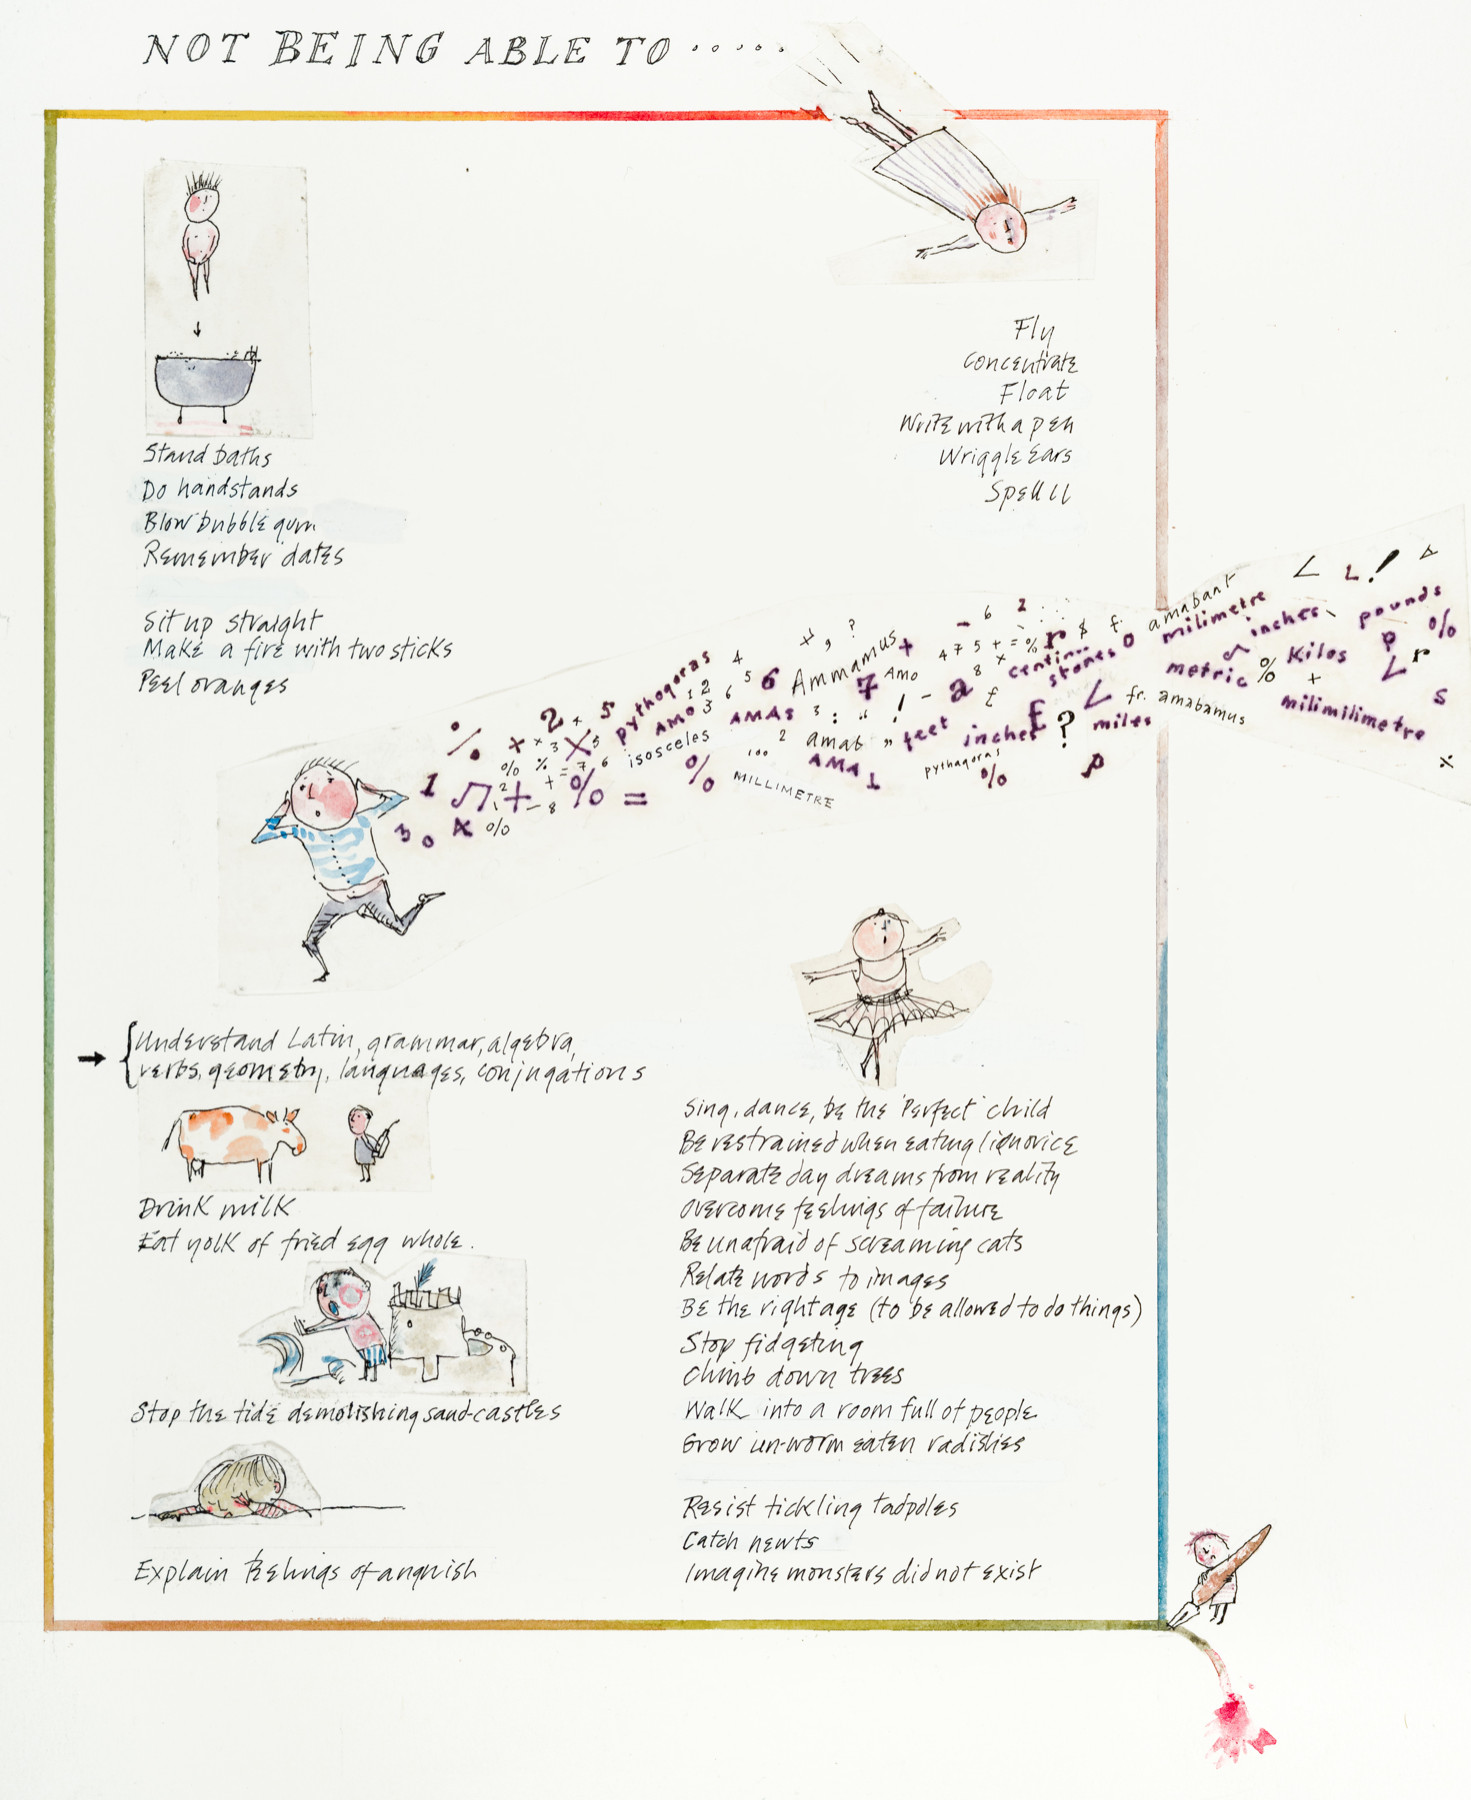 NOT BEING ABLE TO .....
Stand baths
Do handstands
Blow bubble gum
Remember dates
Sit up straight
Make a fire with two sticks
Peel oranges
Fly
Concentrate
Float
Write with a pen
Wriggle ears
Spell
% x 2 + 5 pythagoras 4 x , ? Ammamus + - 6 2
amabant < L ! △
milimetre inches pounds %
metric % Kilos P L r
fr. amabamus + milimilimetre s
x
12 5 6 7 Amo 4 7 5 + = % r $ £
AMO 3 6 AMAS 3 : " ! - a £ 8 x centim.. stones 0
isosceles 100 2 amat " feet inches £ ? < miles
1 + % = % MILLIMETRE AMAT pythagoras % p
3 0 x % - 8
Understand Latin, grammar, algebra,
verbs, geometry, languages, conjugations
Drink milk
Eat yolk of fried egg whole.
Stop the tide demolishing sand-castles
Explain feelings of anguish
Sing, dance, be the 'Perfect' child
Be restrained when eating liquorice
Separate day dreams from reality
Overcome feelings of failure
Be unafraid of screaming cats
Relate words to images
Be the right age (to be allowed to do things)
Stop fidgeting
Climb down trees
Walk into a room full of people
Grow un-worm eaten radishes
Resist tickling tadpoles
Catch newts
Imagine monsters did not exist